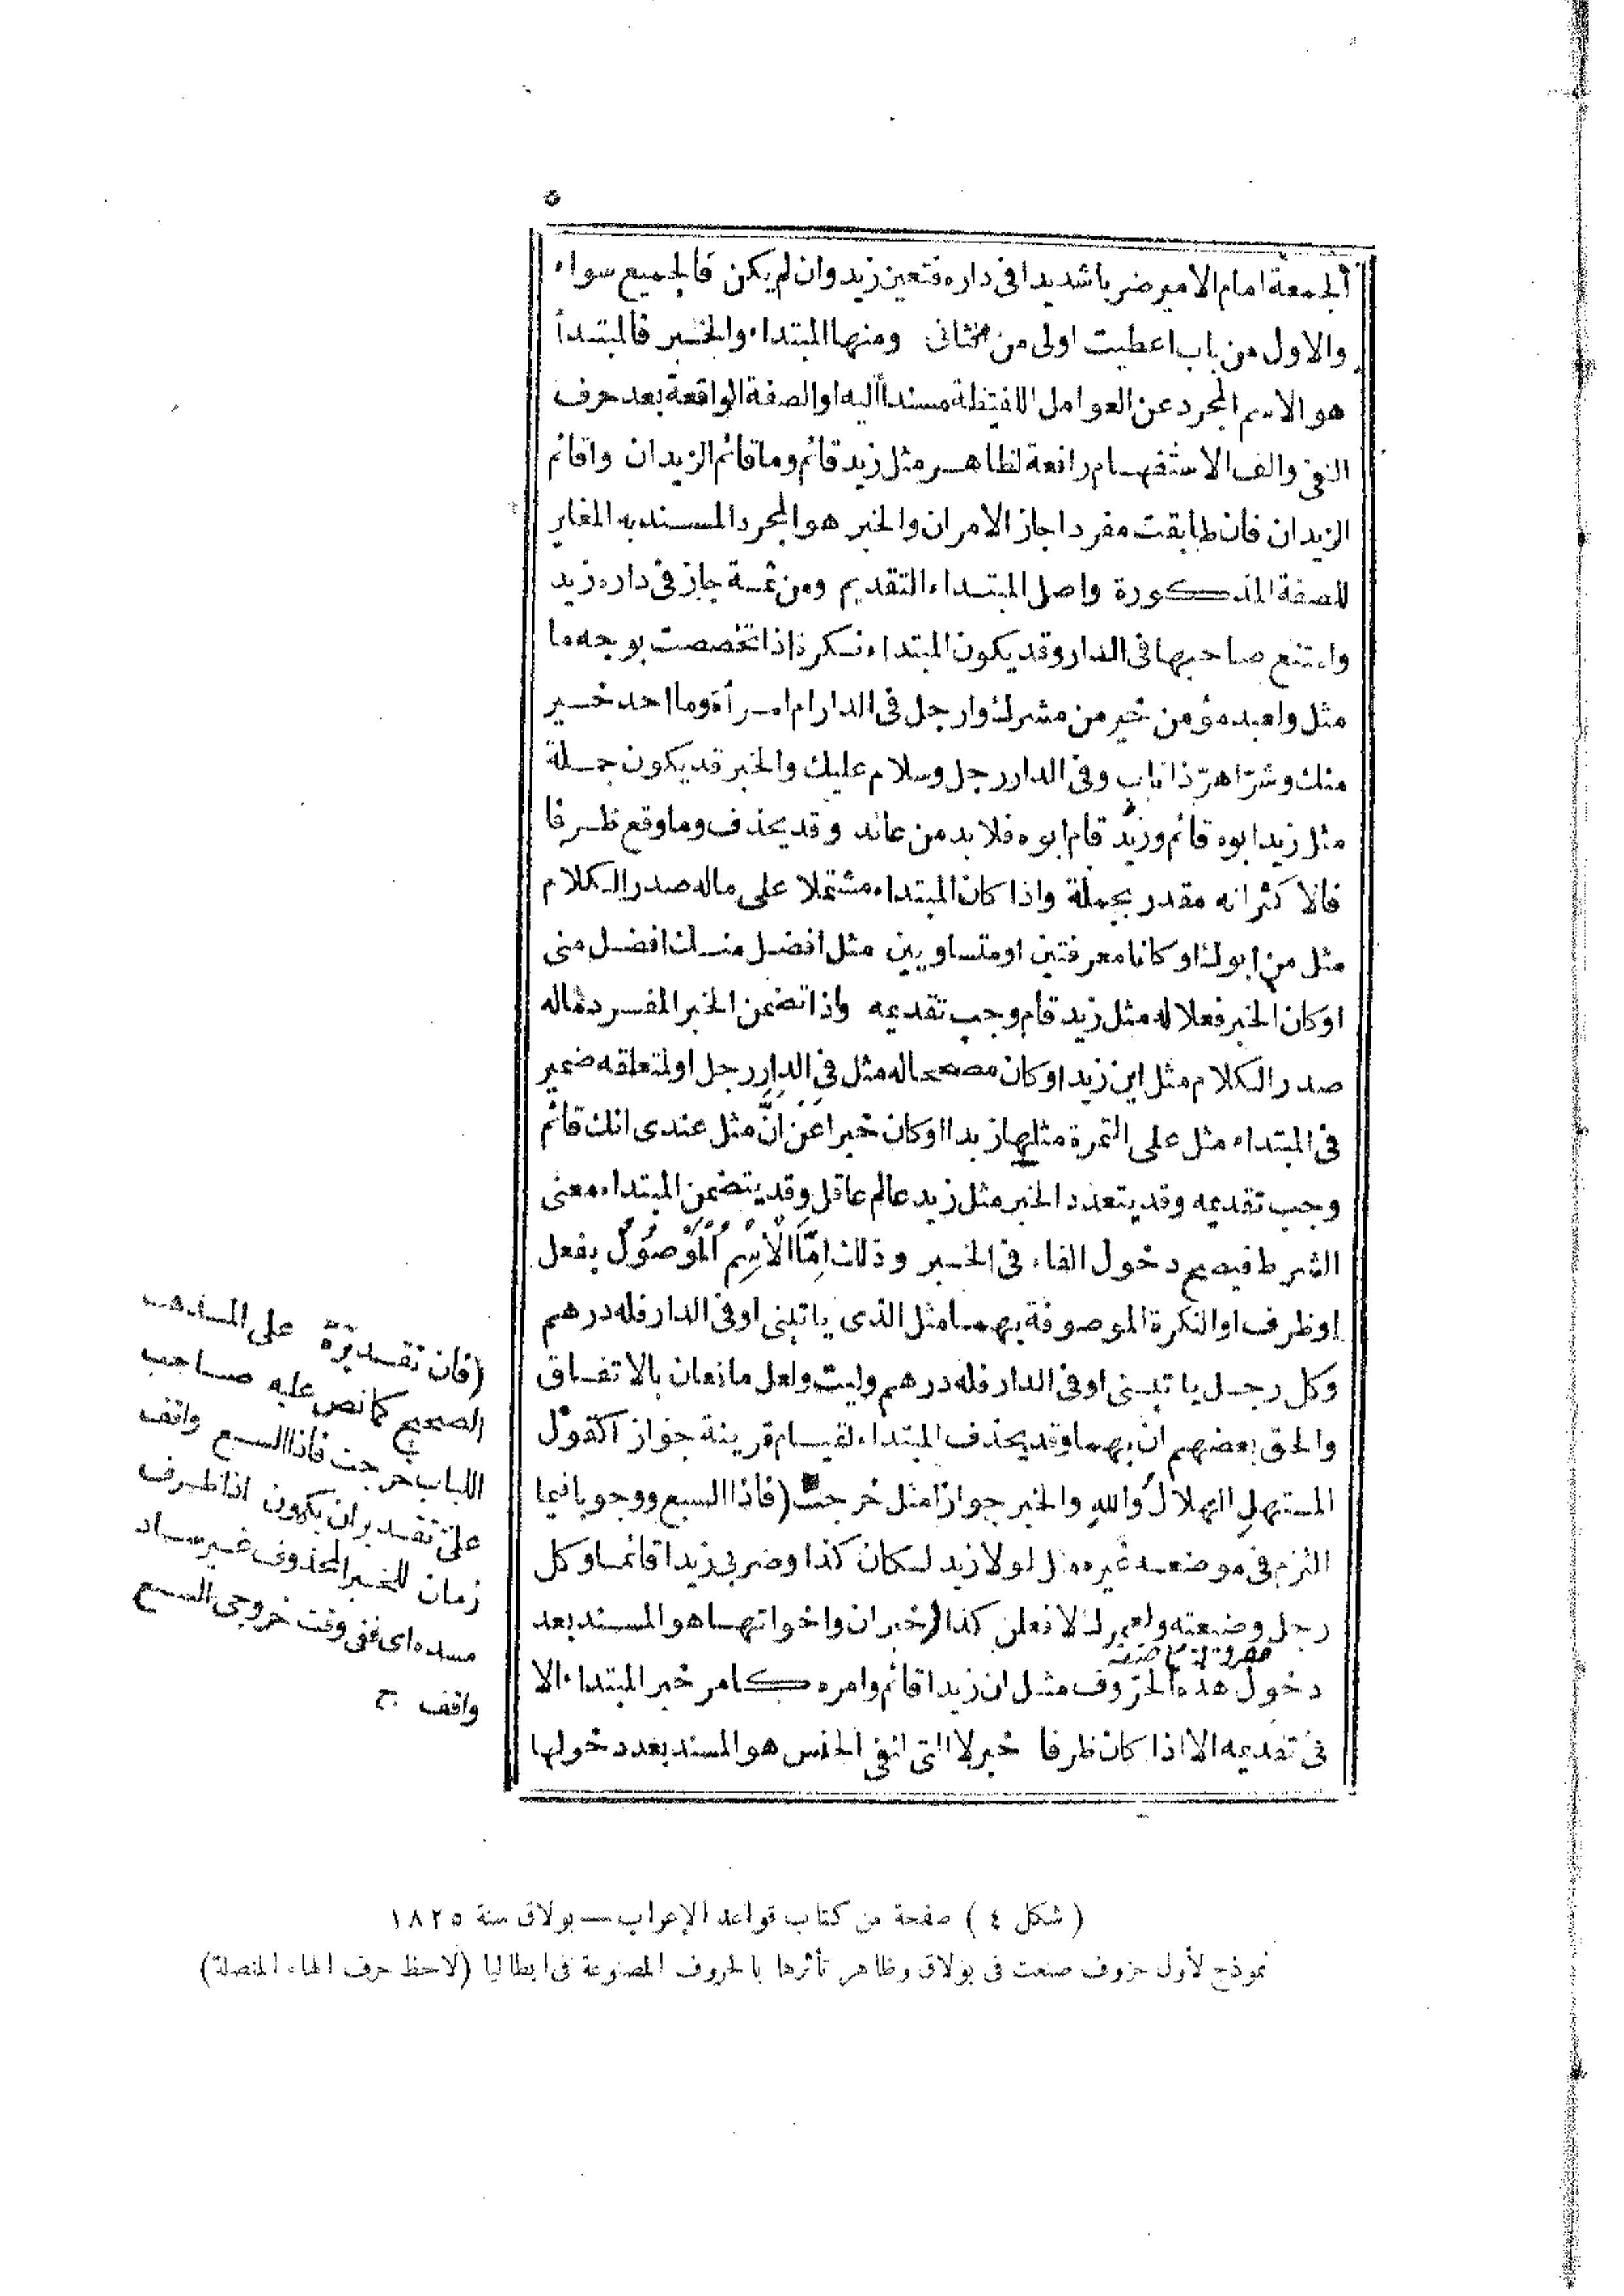 ٥
الجمعة امام الامير ضربا شديدا فى داره فتعين زيد وان لم يكن فالجميع سواء
والاول من باب اعطيت اولى من الثانى ومنها المبتداء والخبر فالمبتدأ
هو الاسم المجرد عن العوامل اللفيظة مسنداً اليه او الصفة الواقعة بعد حرف
النفى والف الاستفهام رافعة لظاهر مثل زيد قائم وما قائم الزيدان واقائم
الزيدان فان طابقت مفردا جاز الامران والخبر هو المجرد المسند به المغاير
للصفة المذكورة واصل المبتداء التقديم ومن ثمة جاز فى داره زيد
وامتنع صاحبها فى الدار وقد يكون المبتداء نكرة اذا تخصصت بوجه ما
مثل ولعبد مؤمن خير من مشرك وارجل فى الدار ام امرأة وما احد خير
منك وشرّ اهرّ ذا ناب وفى الدار رجل وسلام عليك والخبر قد يكون جملة
مثل زيد ابوه قائم وزيد قام ابوه فلا بد من عائد وقد يحذف وما وقع ظرفا
فالاكثر انه مقدر بجملة واذا كان المبتداء مشتملا على ماله صدر الكلام
مثل من ابوك او كانا معرفتين او متساويين مثل افضل منك افضل منى
او كان الخبر فعلا له مثل زيد قام وجب تقديمه واذا تضمن الخبر المفرد ماله
صدر الكلام مثل اين زيد او كان مصححاله مثل فى الدار رجل او لمتعلقه ضمير
فى المبتداء مثل على التمرة مثلها زبدا او كان خبرا عن انَّ مثل عندى انك قائم
وجب تقديمه وقد يتعدد الخبر مثل زيد عالم عاقل وقد يتضمن المبتداء معنى
الشرط فيصح دخول الفاء فى الخبر وذلك اِمَّا الْاِسْمُ الْمَوْصُولُ بفعل
او ظرف او النكرة الموصوفة بهما مثل الذى ياتينى او فى الدار فله درهم
وكل رجل ياتينى او فى الدار فله درهم وليت ولعل مانعان بالاتفاق
والحق بعضهم ان بهما وقد يحذف المبتداء لقيام قرينة جواز اكقول
المستهل الهلال والله والخبر جوازا مثل خرجت (فاذا السبع ووجوبا فيما
التزم فى موضعه غيره مثل لولا زيد لكان كذا وضربى زيدا قائما وكل
رجل وضيعته ولعمرك لافعلن كذا (خبر ان واخواتها هو المسند بعد
دخول هذه الحروف مثل ان زيدا قائم وامره كامر خبر المبتداء الا
فى تقديمه الا اذا كان ظرفا خبر لا التى لنفى الجنس هو المسند بعد دخولها
(فان تقديره على المذهب
الصحيح كما نص عليه صاحب
اللباب خرجت فاذا السبع واقف
على تقدير ان يكون اذا ظرف
زمان للخبر المحذوف غير ساد
مسده اى ففى وقت خروجى السبع
واقف ج
(شكل ٤) صفحة من كتاب قواعد الإعراب — بولاق سنة ١٨٢٥
نموذج لأول حروف صنعت فى بولاق وظاهر تأثرها بالحروف المصنوعة فى ايطاليا (لاحظ حرف الهاء المتصلة)